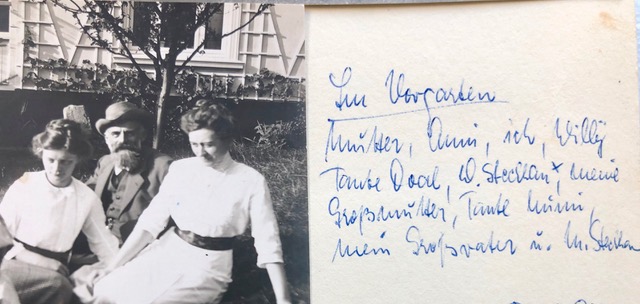 Im Vorgarten
Mutter, Anni, ich, Willy
Tante Dodl, W. Steckhan*, meine
Großmutter, Tante Mimi,
mein Großvater u. M. Steckhan